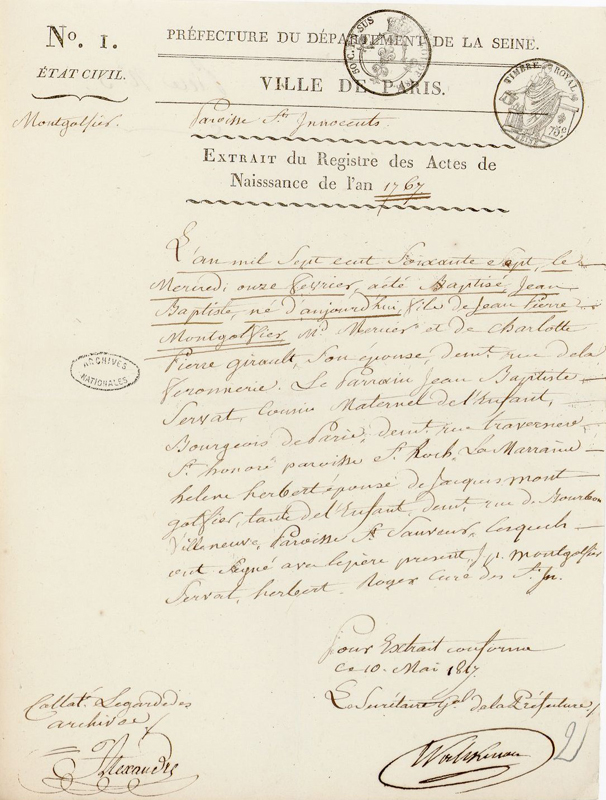 No. 1.
PRÉFECTURE DU DÉPARTEMENT DE LA SEINE.
ÉTAT CIVIL.
VILLE DE PARIS.
TIMBRE ROYAL
75c
Montgolfier.
Paroisse Sts Innocents.
EXTRAIT du Registre des Actes de
Naisssance de l'an 1767
L'an mil Sept cent Soixante Sept, le
Mercredi onze février, a été Baptisé, Jean
Baptiste, né d'aujourd'hui, fils de Jean Pierre
Montgolfier, Md. Mercier et de Charlotte
Pierre girault, Son épouse, demt. rue de la
feronnerie. Le Parrain Jean Baptiste
Servat, Cousin Maternel de l'Enfant,
Bourgeois de Paris, demt. rue traversiere
St. honoré paroisse St. Roch, La Marraine
helene herbert épouse de Jacques mont
golfier, tante de l'Enfant, demt. rue de Bourbon
villeneuve, Paroisse St Sauveur, Lesquels
ont Signé avec le père present, J. p. montgolfier
Servat, herbert. Roger Curé des Sts. In.
ARCHIVES
NATIONALES
Pour Extrait conforme
ce 10. Mai 1817
Le Secrétaire Gal. de la Préfecture
Collat. Le garde des
archives
Alexandre
2